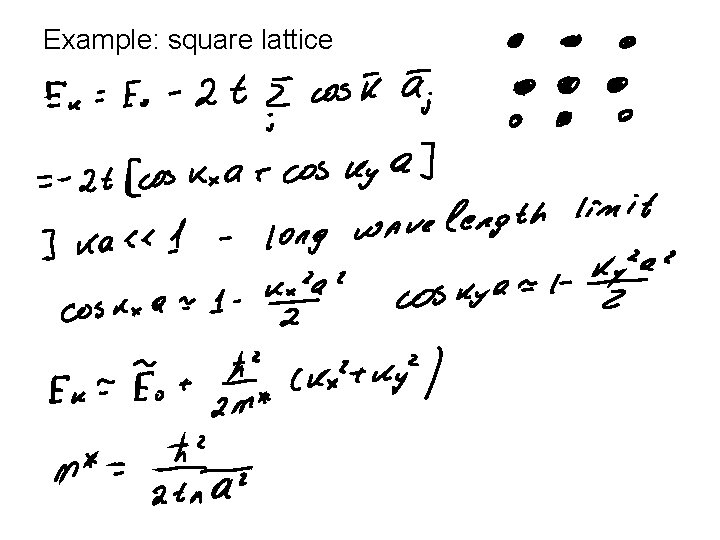 Example: square lattice
E_k = E_0 - 2t Σ_j cos k̄ ā_j
= -2t [cos k_x a + cos k_y a]
] ka << 1 - long wavelength limit
cos k_x a ≃ 1 - k_x² a² / 2 cos k_y a ≃ 1 - k_y² a² / 2
E_k ≃ Ẽ_0 + ħ² / 2m* (k_x² + k_y²)
m* = ħ² / 2t_n a²